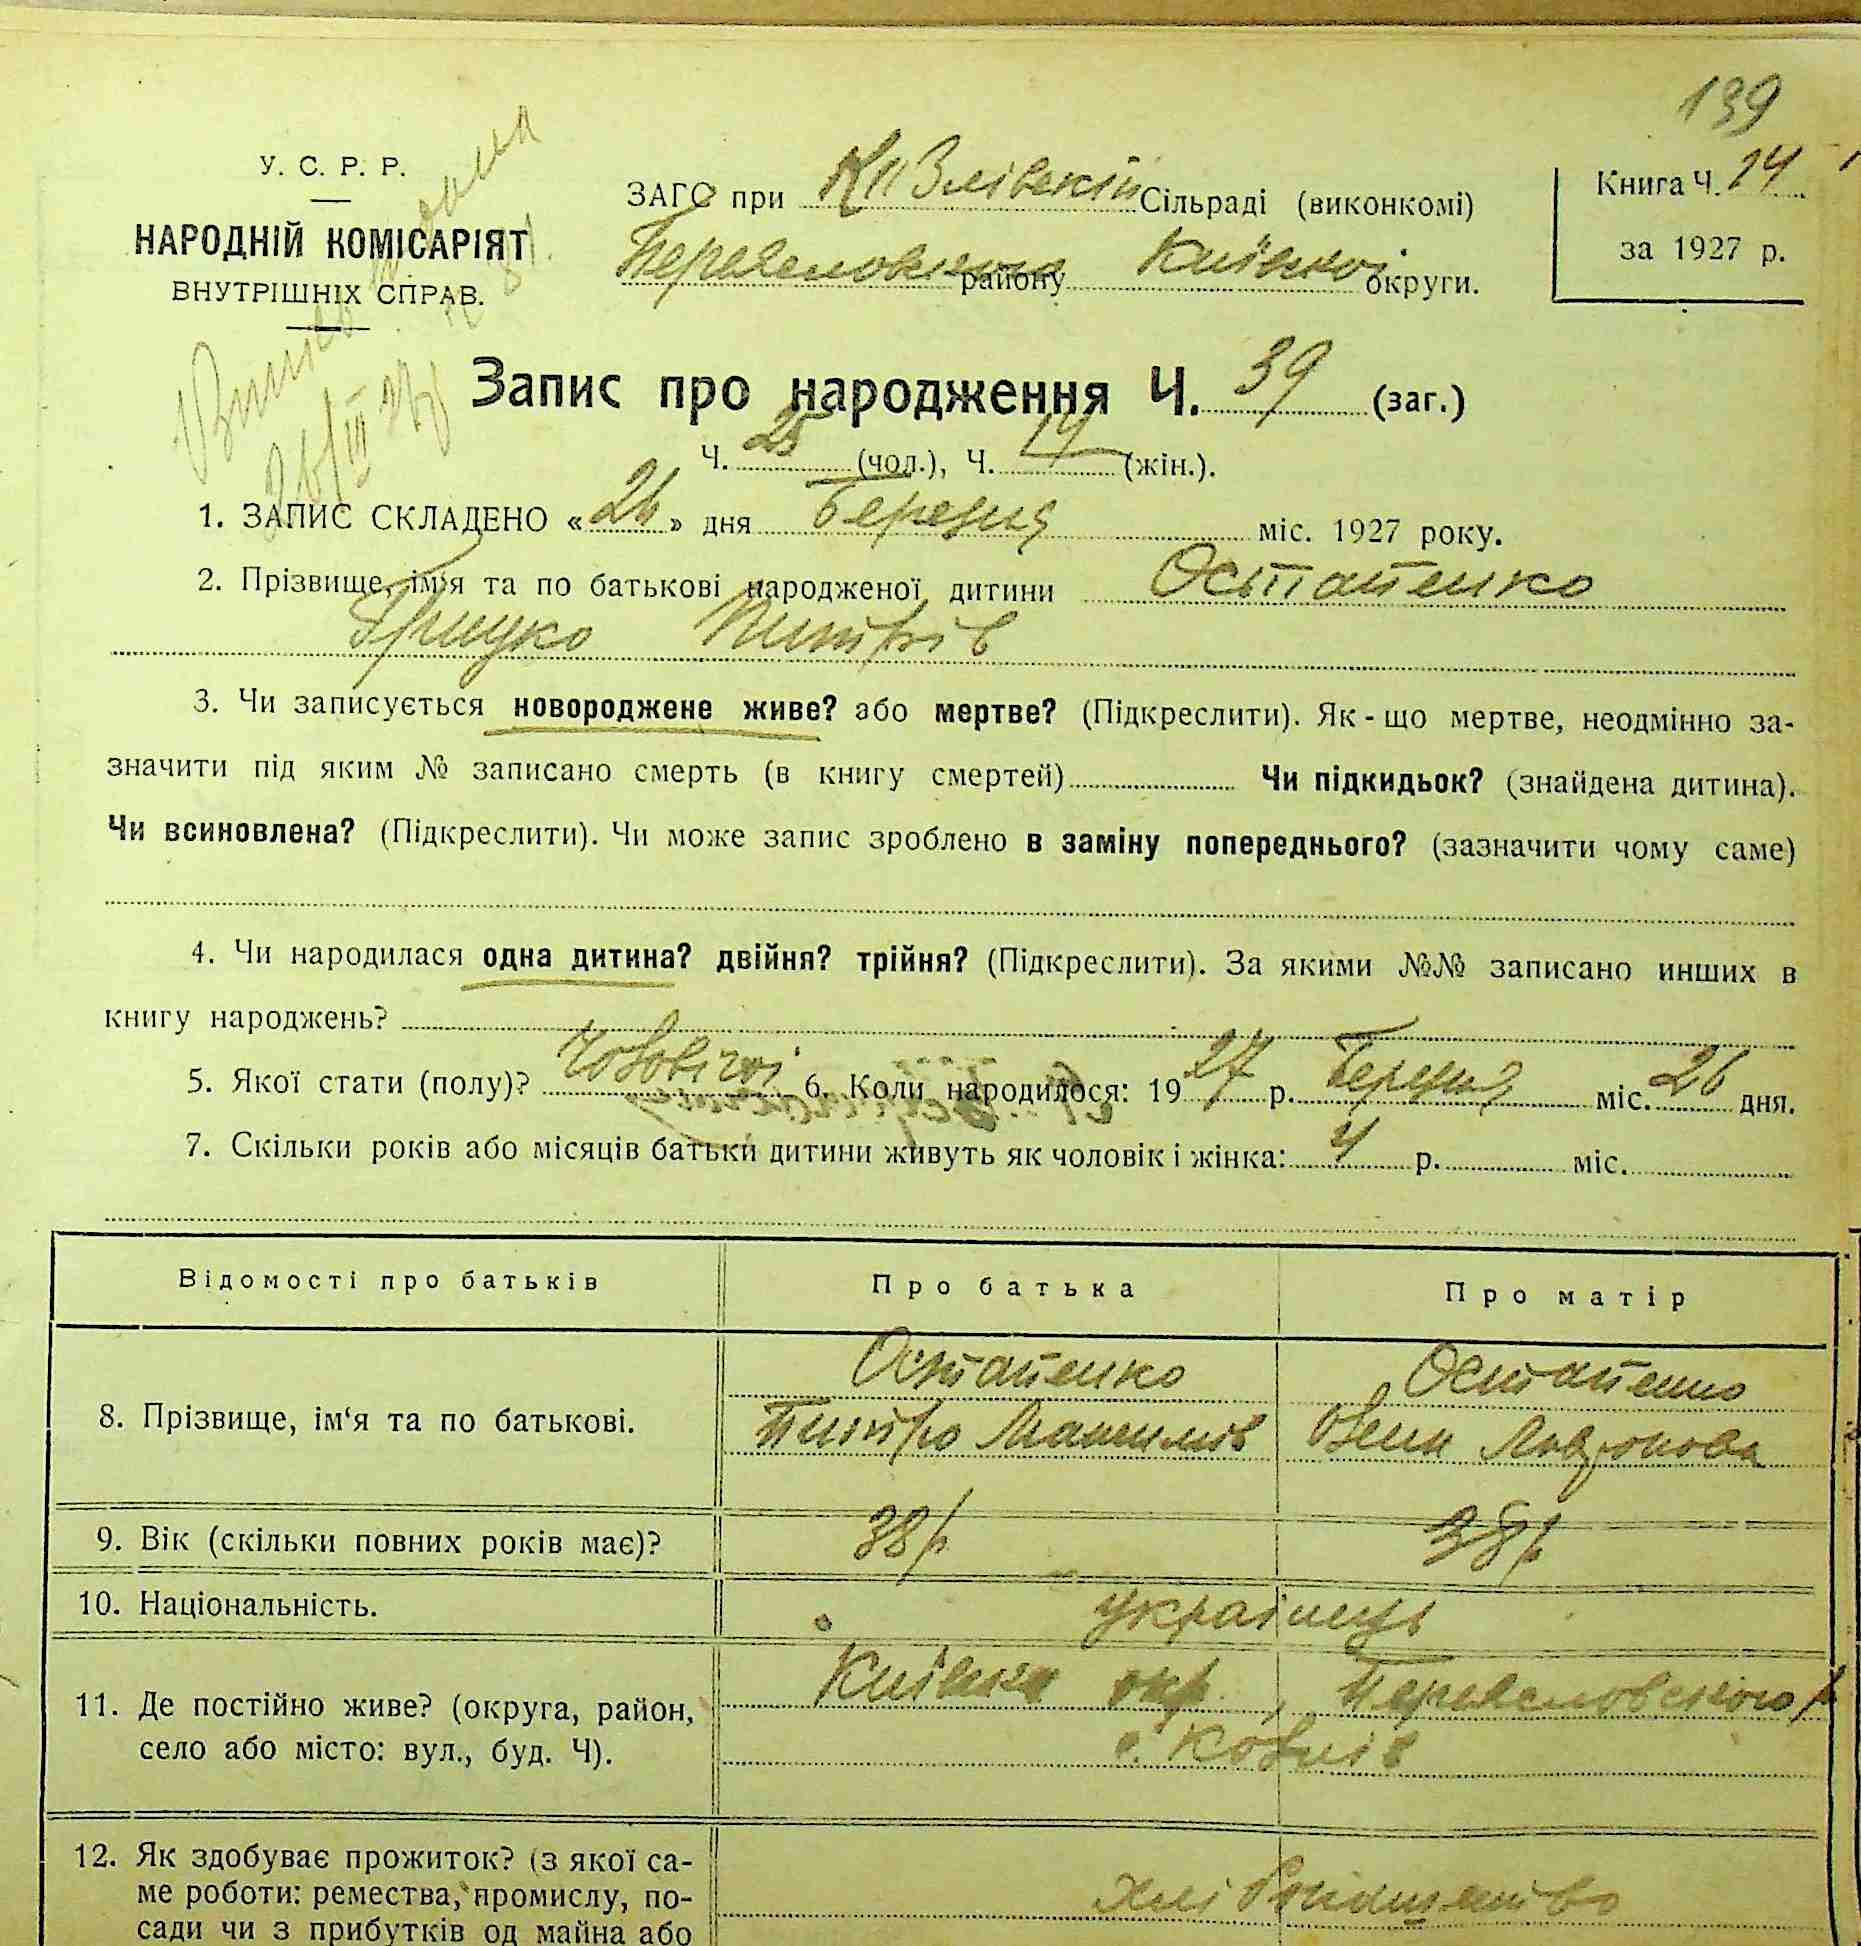 139
У. С. Р. Р.
НАРОДНІЙ КОМІСАРІЯТ
ВНУТРІШНІХ СПРАВ.
ЗАГС при Козлівській Сільраді (виконкомі)
Переяславського району Київської округи.
Книга Ч. 14
за 1927 р.
Запис про народження Ч. 39 (заг.)
Ч. 25 (чол.), Ч. 14 (жін.).
1. ЗАПИС СКЛАДЕНО « 26 » дня Березня міс. 1927 року.
2. Прізвище, ім'я та по батькові народженої дитини Остапенко
Грицко Питрів
3. Чи записується новороджене живе? або мертве? (Підкреслити). Як-що мертве, неодмінно за-
значити під яким № записано смерть (в книгу смертей) Чи підкидьок? (знайдена дитина).
Чи всиновлена? (Підкреслити). Чи може запис зроблено в заміну попереднього? (зазначити чому саме)
4. Чи народилася одна дитина? двійня? трійня? (Підкреслити). За якими №№ записано инших в
книгу народжень?
5. Якої стати (полу)? Чоловічої 6. Коли народилося: 1927 р. Березня міс. 26 дня.
7. Скільки років або місяців батьки дитини живуть як чоловік і жінка: 4 р. міс.
Відомості про батьків Про батька Про матір
8. Прізвище, ім'я та по батькові. Остапенко Остапенко
Питро
9. Вік (скільки повних років має)? 38 р. 38 р.
10. Національність. українець
11. Де постійно живе? (округа, район, Київська окр., Переясловського р
село або місто: вул., буд. Ч). с. Козлів
12. Як здобуває прожиток? (з якої са-
ме роботи: ремества, промислу, по- хліборобство
сади чи з прибутків од майна або